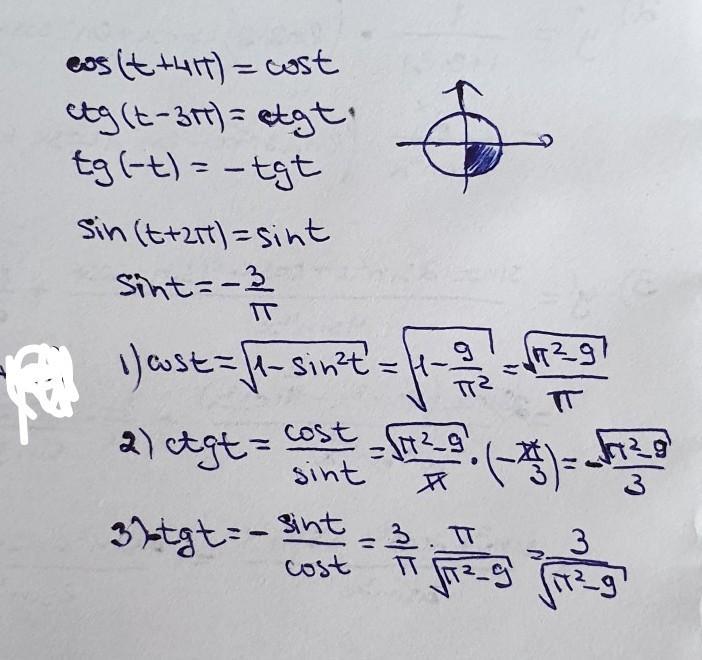 cos(t+4π) = cost
ctg(t-3π) = ctgt.
tg(-t) = -tgt
sin(t+2π) = sint
sint = -3/π
1) cost = √(1-sin²t) = √(1-9/π²) = √(π²-9)/π
2) ctgt = cost/sint = √(π²-9)/π · (-π/3) = -√(π²-9)/3
3) -tgt = -sint/cost = 3/π · π/√(π²-9) = 3/√(π²-9)